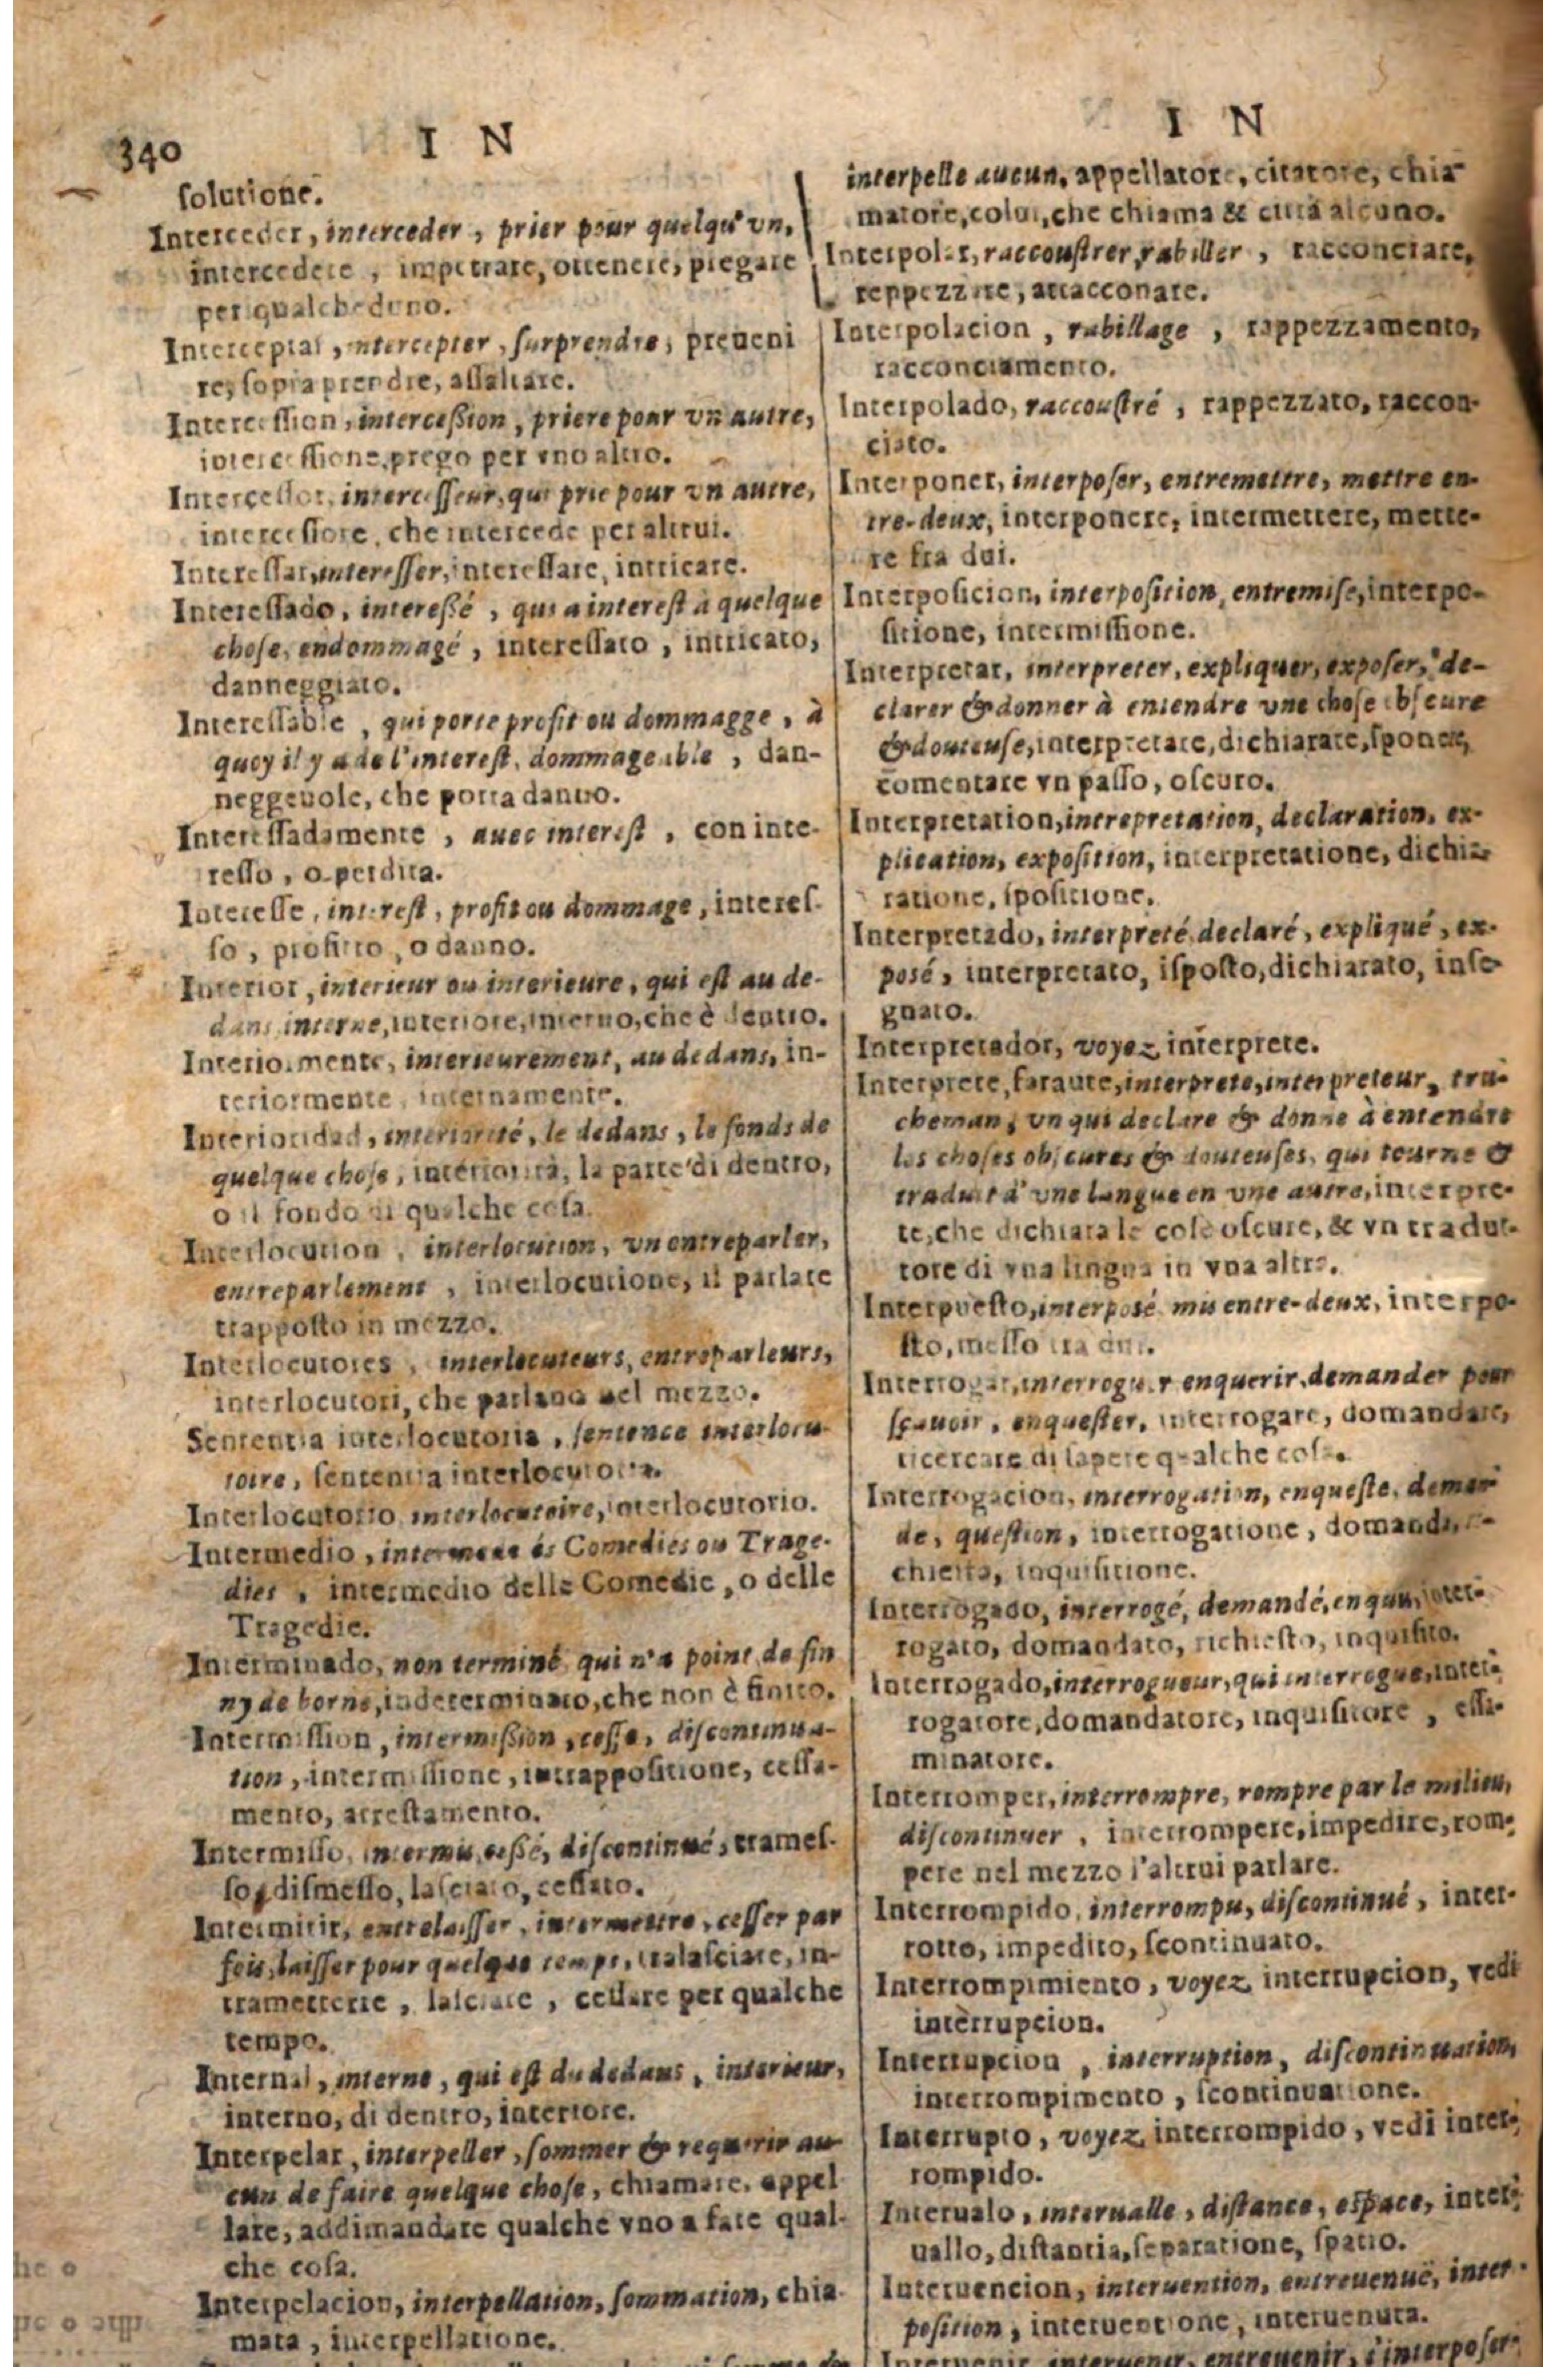 340
I N
ſolutione.
Interceder, interceder, prier pour quelqu'vn,
intercedere, impetrare, ottenere, pregare
per qualcheduno.
Interceptar, intercepter, ſurprendre, preueni
re, ſopra prendre, aſſaltare.
Interceſſion, interceßion, priere pour vn autre,
interceſſione, prego per vno altro.
Interceſſor, interceſſeur, qui prie pour vn autre,
interceſſore, che intercede per altrui.
Intereſſar, intereſſer, intereſſare, intricare.
Intereſſado, intereßé, qui a intereſt à quelque
choſe, endommagé, intereſſato, intricato,
danneggiato.
Intereſſable, qui porte profit ou dommagge, à
quoy il y a de l'intereſt, dommageable, dan-
neggeuole, che porta danno.
Intereſſadamente, auec intereſt, con inte-
reſſo, o perdita.
Intereſſe, intereſt, profit ou dommage, intereſ-
ſo, profitto, o danno.
Interior, interieur ou interieure, qui eſt au de-
dans, interne, interiore, interno, che è dentro.
Interiormente, interieurement, au dedans, in-
teriormente, internamente.
Interioridad, interiorité, le dedans, le fonds de
quelque choſe, interiorità, la parte di dentro,
o il fondo di qualche coſa.
Interlocution, interlocution, vn entreparler,
entreparlement, interlocutione, il parlare
trappoſto in mezzo.
Interlocutores, interlocuteurs, entreparleurs,
interlocutori, che parlano nel mezzo.
Sententia interlocutoria, ſentence interlocu-
toire, ſententia interlocutoria.
Interlocutorio, interlocutoire, interlocutorio.
Intermedio, intermede és Comedies ou Trage-
dies, intermedio delle Comedie, o delle
Tragedie.
Interminado, non terminé qui n'a point de fin
ny de borne, indeterminato, che non è finito.
Intermiſſion, intermißion, ceſſe, diſcontinua-
tion, intermiſſione, intrappoſitione, ceſſa-
mento, arreſtamento.
Intermiſſo, intermis, ceßé, diſcontinué, trameſ-
ſo, diſmeſſo, laſciato, ceſſato.
Intermitir, entrelaiſſer, intermettre, ceſſer par
fois, laiſſer pour quelque temps, tralaſciare, in-
trametterte, laſciare, ceſſare per qualche
tempo.
Internal, interne, qui eſt du dedans, interieur,
interno, di dentro, interiore.
Interpelar, interpeller, ſommer & requerir au-
cun de faire quelque choſe, chiamare, appel
lare, addimandare qualche vno a fare qual-
che coſa.
Interpelacion, interpellation, ſommation, chia
mata, interpellatione.
I N
interpelle aucun, appellatore, citatore, chia
matore, colui, che chiama & citta alcuno.
Interpolar, raccouſtrer, rabiller, racconciare,
reppezzare, attacconare.
Interpolacion, rabillage, rappezzamento,
racconciamento.
Interpolado, raccouſtré, rappezzato, raccon-
ciato.
Interponer, interpoſer, entremettre, mettre en-
tre-deux, interponere, intermettere, mette-
re fra dui.
Interpoſicion, interpoſition, entremiſe, interpo-
ſitione, intermiſſione.
Interpretar, interpreter, expliquer, expoſer, de-
clarer & donner à entendre vne choſe obſcure
& douteuſe, interpretare, dichiarare, ſponere,
comentare vn paſſo, oſcuro.
Interpretation, intrepretation, declaration, ex-
plication, expoſition, interpretatione, dichia-
ratione, ſpoſitione.
Interpretado, interpreté, declaré, expliqué, ex-
posé, interpretato, iſpoſto, dichiarato, inſe-
gnato.
Interpretador, voyez interprete.
Interprete, faraute, interprete, interpreteur, tru-
cheman, vn qui declare & donne à entendre
les choſes obſcures & douteuſes, qui tourne &
traduit d'vne langue en vne autre, interpre-
te, che dichiara le coſe oſcure, & vn tradut-
tore di vna lingua in vna altra.
Interpueſto, interposé mis entre-deux, interpo-
ſto, meſſo tra dui.
Interrogar, interroguer enquerir, demander pour
ſçauoir, enqueſter, interrogare, domandare,
ricercare di ſapere qualche coſa.
Interrogacion, interrogation, enqueſte, deman
de, queſtion, interrogatione, domanda, ri-
chieſta, inquiſitione.
Interrogado, interrogé, demandé, enquis, inter-
rogato, domandato, richieſto, inquiſito.
Interrogado, interrogueur, qui interrogue, inter-
rogatore, domandatore, inquiſitore, eſſa-
minatore.
Interromper, interrompre, rompre par le milieu,
diſcontinuer, interrompere, impedire, rom-
pere nel mezzo l'altrui parlare.
Interrompido, interrompu, diſcontinué, inter-
rotto, impedito, ſcontinuato.
Interrompimiento, voyez interrupcion, vedi
interrupcion.
Interrupcion, interruption, diſcontinuation,
interrompimento, ſcontinuatione.
Interrupto, voyez interrompido, vedi inter-
rompido.
Interualo, interualle, diſtance, eſpace, inter-
uallo, diſtantia, ſeparatione, ſpatio.
Interuencion, interuention, entreuenuë, inter-
poſition, interuentione, interuenuta.
Interuenir, interuenir, entreuenir, s'interpoſer